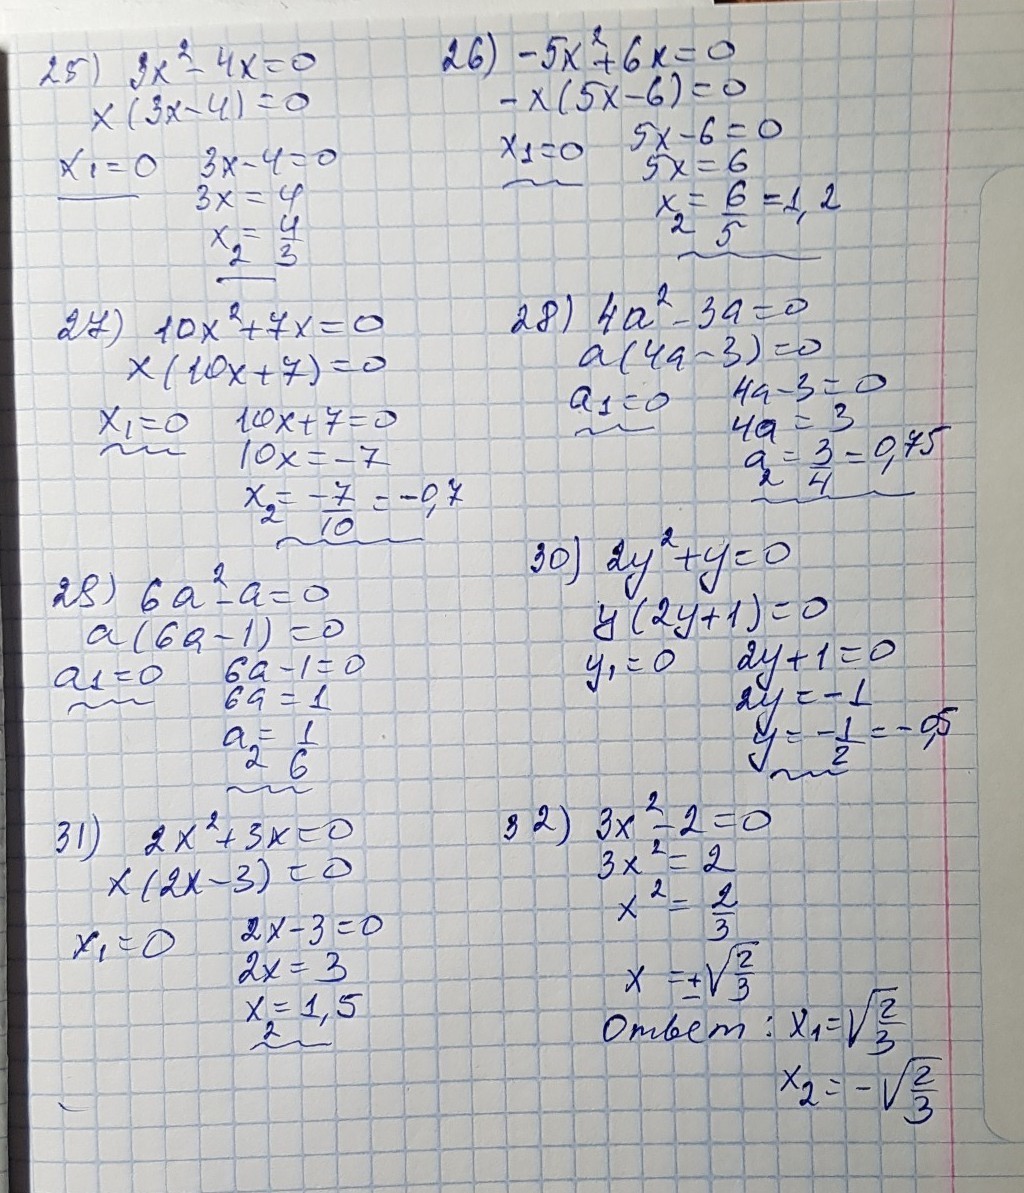 25) 3x² - 4x = 0
x(3x-4) = 0
x₁ = 0 3x-4 = 0
3x = 4
x₂ = 4/3
26) -5x² + 6x = 0
-x(5x-6) = 0
x₁ = 0 5x-6 = 0
5x = 6
x₂ = 6/5 = 1,2
27) 10x² + 7x = 0
x(10x+7) = 0
x₁ = 0 10x+7 = 0
10x = -7
x₂ = -7/10 = -0,7
28) 4a² - 3a = 0
a(4a-3) = 0
a₁ = 0 4a-3 = 0
4a = 3
a₂ = 3/4 = 0,75
29) 6a² - a = 0
a(6a-1) = 0
a₁ = 0 6a-1 = 0
6a = 1
a₂ = 1/6
30) 2y² + y = 0
y(2y+1) = 0
y₁ = 0 2y+1 = 0
2y = -1
y = -1/2 = -0,5
31) 2x² + 3x = 0
x(2x-3) = 0
x₁ = 0 2x-3 = 0
2x = 3
x₂ = 1,5
32) 3x² - 2 = 0
3x² = 2
x² = 2/3
x = ±√2/3
Ответ: x₁ = √2/3
x₂ = -√2/3